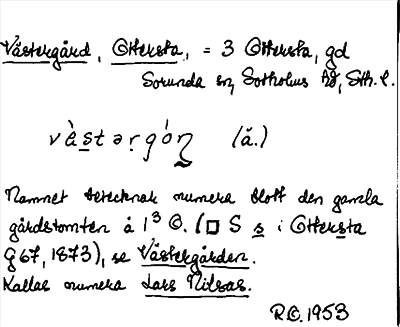 Västergård, Ottersta, = 3 Ottersta, gd
Sorunda sn, Sotholms hd, Sth. l.
vàstərgón (ä.)
Namnet betecknar numera blott den gamla
gårdstomten å 1³ O. (□ S s i Ottersta
G 67, 1873), se Västergården.
Kallas numera Lars Nilsas.
R.O. 1953